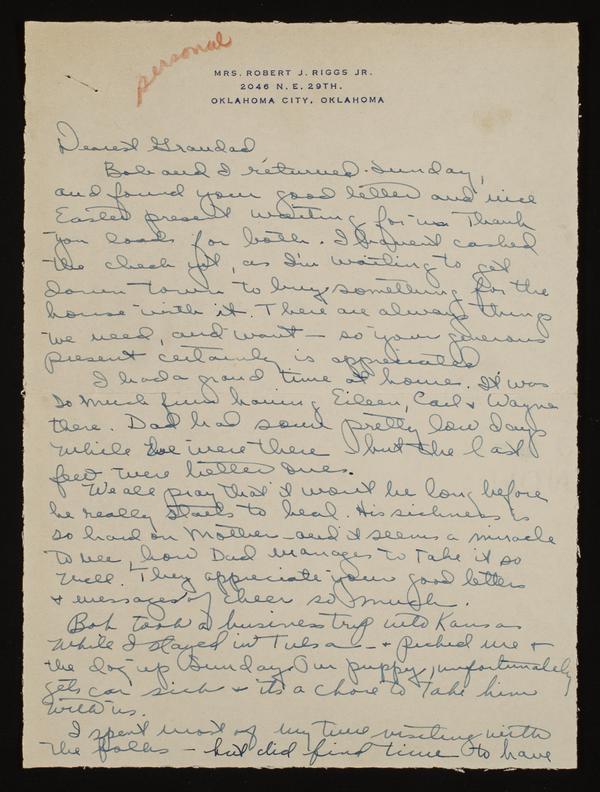 personal
MRS. ROBERT J. RIGGS JR.
2046 N. E. 29TH.
OKLAHOMA CITY, OKLAHOMA
Dearest Grandad
Bob and I returned Sunday,
and found your good letter and nice
Easter present waiting for us. Thank
you loads for both. I haven't cashed
the check yet, as I'm waiting to get
down town to buy something for the
house with it. There are always things
we need, and want - so your generous
present certainly is appreciated
I had a grand time at home. It was
so much fun having Eileen, Carl & Wayne
there. Dad had some pretty low days
while we were there but the last
few were better ones.
We all pray that it won't be long before
he really starts to heal. His sickness is
so hard on Mother - and it seems a miracle
to see how Dad manages to take it so
well. They appreciate your good letters
& messages of cheer so much.
Bob took a business trip into Kansas
while I stayed in Tulsa - & picked me &
the dog up Sunday. Our puppy, unfortunately
gets car sick & it's a chore to take him
with us.
I spent most of my time visiting with
the folks - but did find time to have